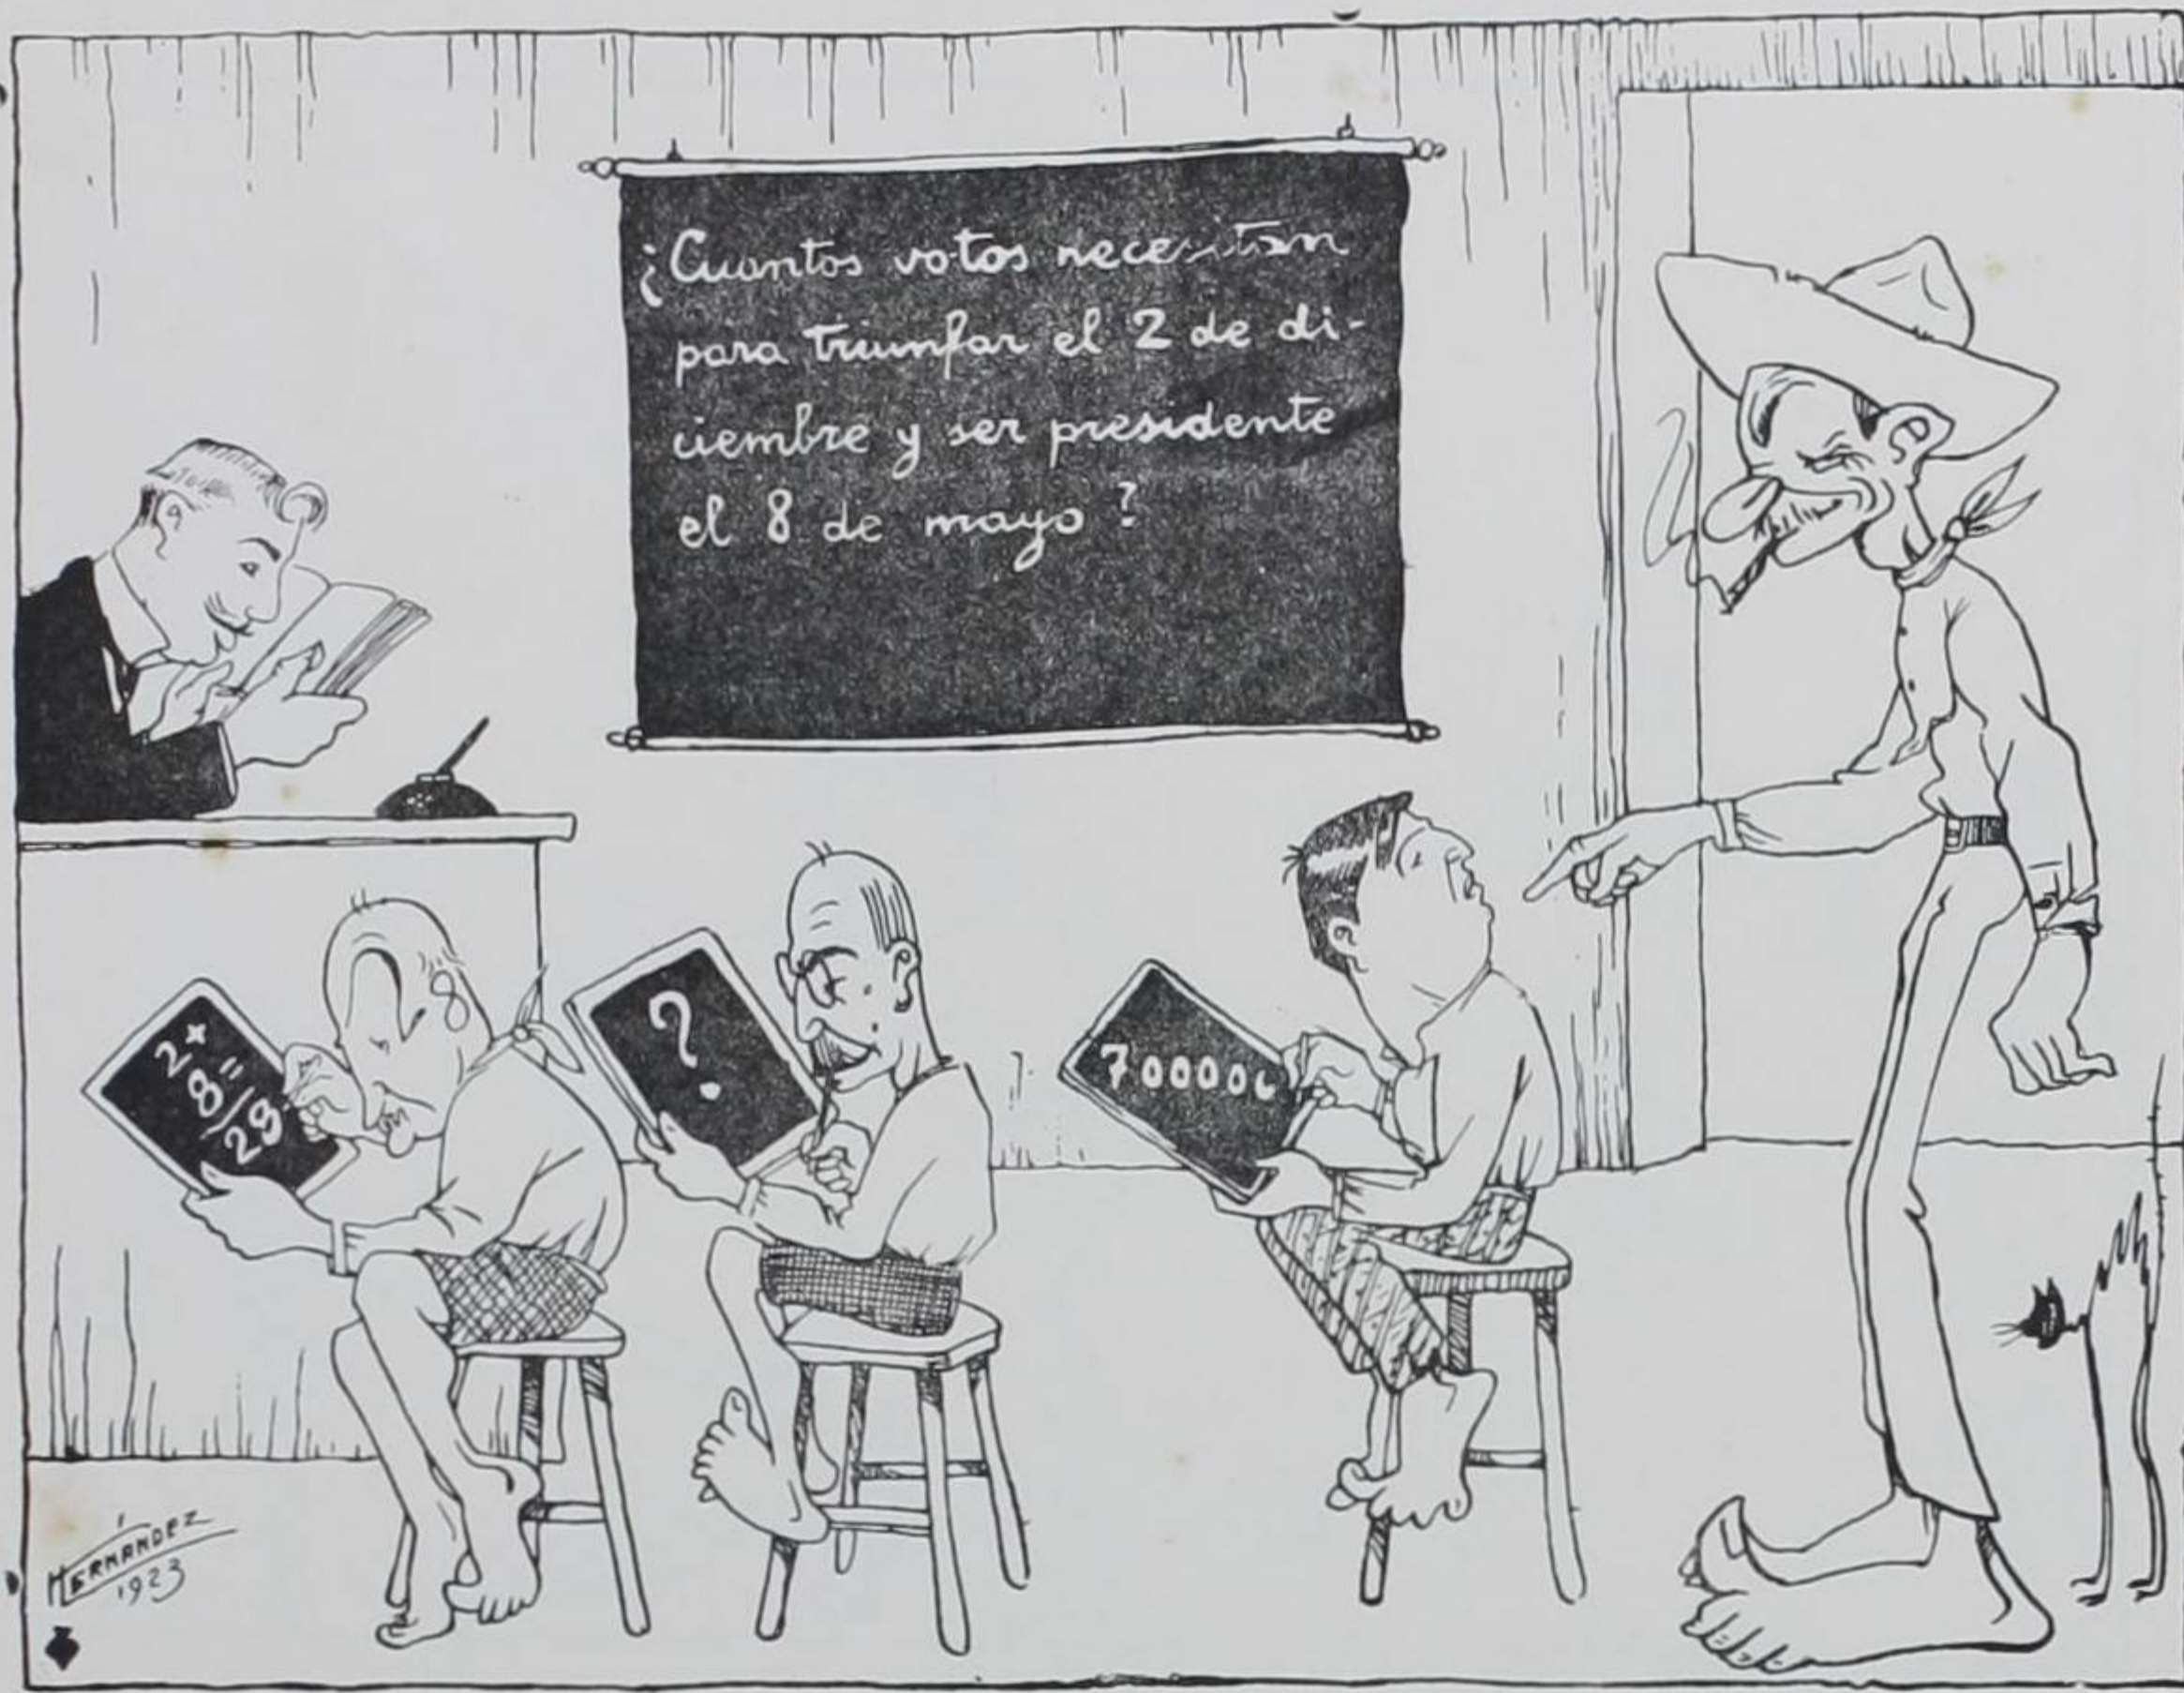 ¿Cuantos votos necesitan
para triunfar el 2 de di-
ciembre y ser presidente
el 8 de mayo ?
2+
8=
29
?
700000
HERNANDEZ
1923